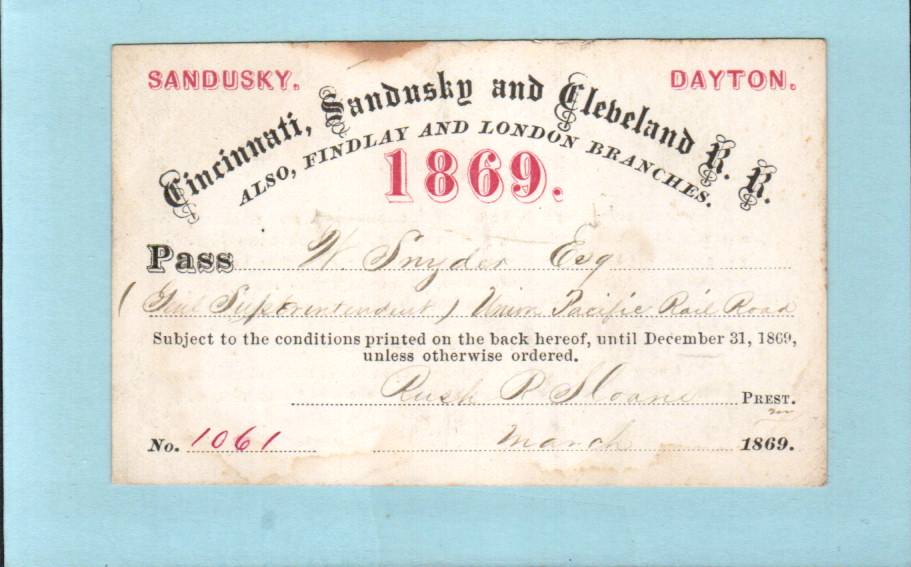 SANDUSKY. DAYTON.
Cincinnati, Sandusky and Cleveland R. R.
ALSO, FINDLAY AND LONDON BRANCHES.
1869.
Pass W. Snyder Esq
(Genl Superintendent) Union Pacific Rail Road
Subject to the conditions printed on the back hereof, until December 31, 1869,
unless otherwise ordered.
Rush R Sloane PREST.
No. 1061 March 1869.